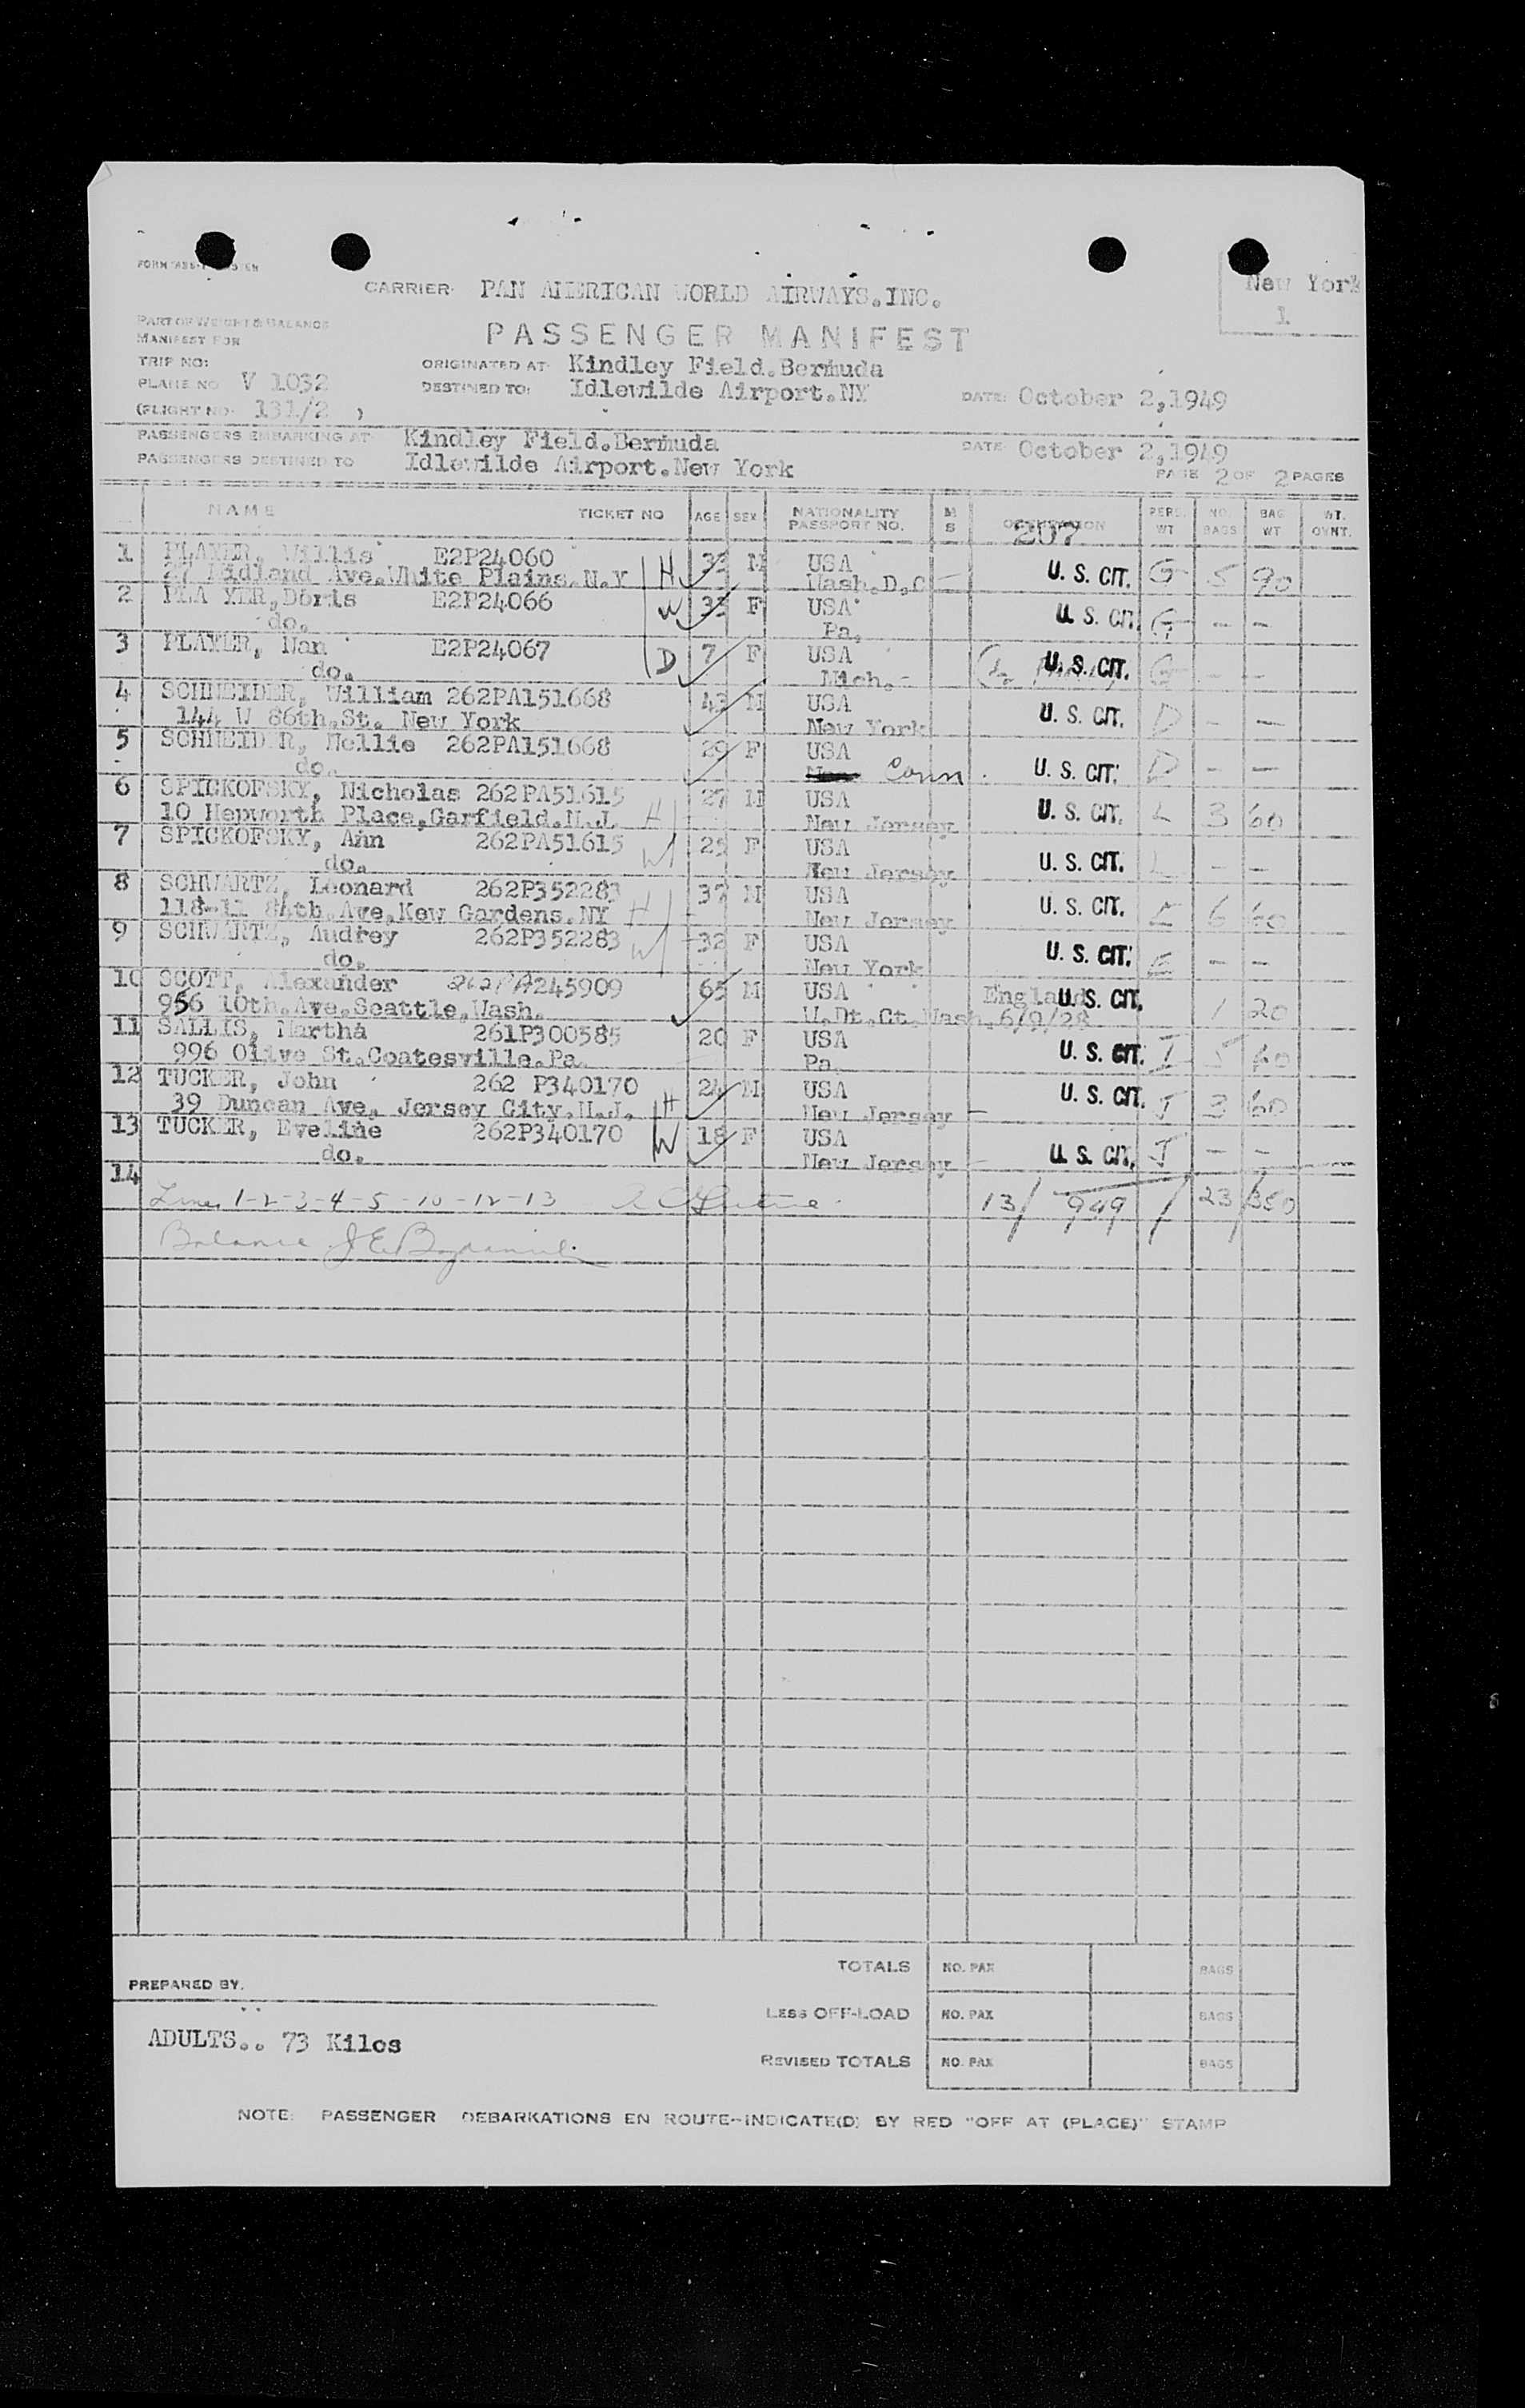 CARRIER: PAN AMERICAN WORLD AIRWAYS.INC.
New York
1
PART OF WEIGHT & BALANCE
MANIFEST FOR
PASSENGER MANIFEST
TRIP NO:
ORIGINATED AT: Kindley Field.Bermuda
PLANE NO V 1032
DESTINED TO: Idlewilde Airport.NY
DATE: October 2,1949
(FLIGHT NO. 131/2 )
PASSENGERS EMBARKING AT Kindley Field.Bermuda
DATE October 2,1949
PASSENGERS DESTINED TO Idlewilde Airport.New York
PAGE 2 OF 2 PAGES
NAME TICKET NO AGE SEX NATIONALITY PASSPORT NO. M S OCCUPATION PERS. WT NO. BAGS BAG WT WT. OVNT.
207
1 PLAYER, Willis E2P24060 H 33 M USA U. S. CIT. G 5 90
27 Midland Ave.White Plains.N.Y Wash.D.C
2 PLA YER,Doris E2P24066 W 33 F USA U. S. CIT. G - -
do. Pa.
3 PLAYER, Nan E2P24067 D 7 F USA U. S. CIT. G - -
do. Mich.
4 SCHNEIDER, William 262PA151668 43 M USA U. S. CIT. D - -
144 W 86th.St. New York New York
5 SCHNEIDER, Nellie 262PA151668 29 F USA U. S. CIT. D - -
do. Conn.
6 SPICKOFSKY, Nicholas 262PA51615 27 M USA U. S. CIT. L 3 60
10 Hepworth Place,Garfield.N.J. H New Jersey
7 SPICKOFSKY, Ann 262PA51615 25 F USA U. S. CIT. L - -
do. W New Jersey
8 SCHWARTZ, Leonard 262P352283 37 M USA U. S. CIT. E 6 60
118-11 84th.Ave.Kew Gardens.NY H New Jersey
9 SCHWARTZ, Audrey 262P352283 W 32 F USA U. S. CIT. E - -
do. New York
10 SCOTT, Alexander 262PA245909 65 M USA England U. S. CIT. 1 20
956 10th.Ave.Seattle.Wash. U.Dt.Ct.Wash.6/9/28
11 SALLIS, Martha 261P300585 20 F USA U. S. CIT. I 5 60
996 Olive St.Coatesville.Pa. Pa.
12 TUCKER, John 262 P340170 24 M USA U. S. CIT. I 3 60
39 Duncan Ave. Jersey City.N.J. H New Jersey
13 TUCKER, Eveline 262P340170 W 18 F USA U. S. CIT. I - -
do. New Jersey
14
Lines 1-2-3-4-5-10-12-13 13/ 949 / 23/350
Balance
PREPARED BY.
TOTALS NO. PAX BAGS
LESS OFF-LOAD NO. PAX BAGS
ADULTS.. 73 Kilos
REVISED TOTALS NO. PAX BAGS
NOTE: PASSENGER DEBARKATIONS EN ROUTE-INDICATE(D) BY RED "OFF AT (PLACE)" STAMP